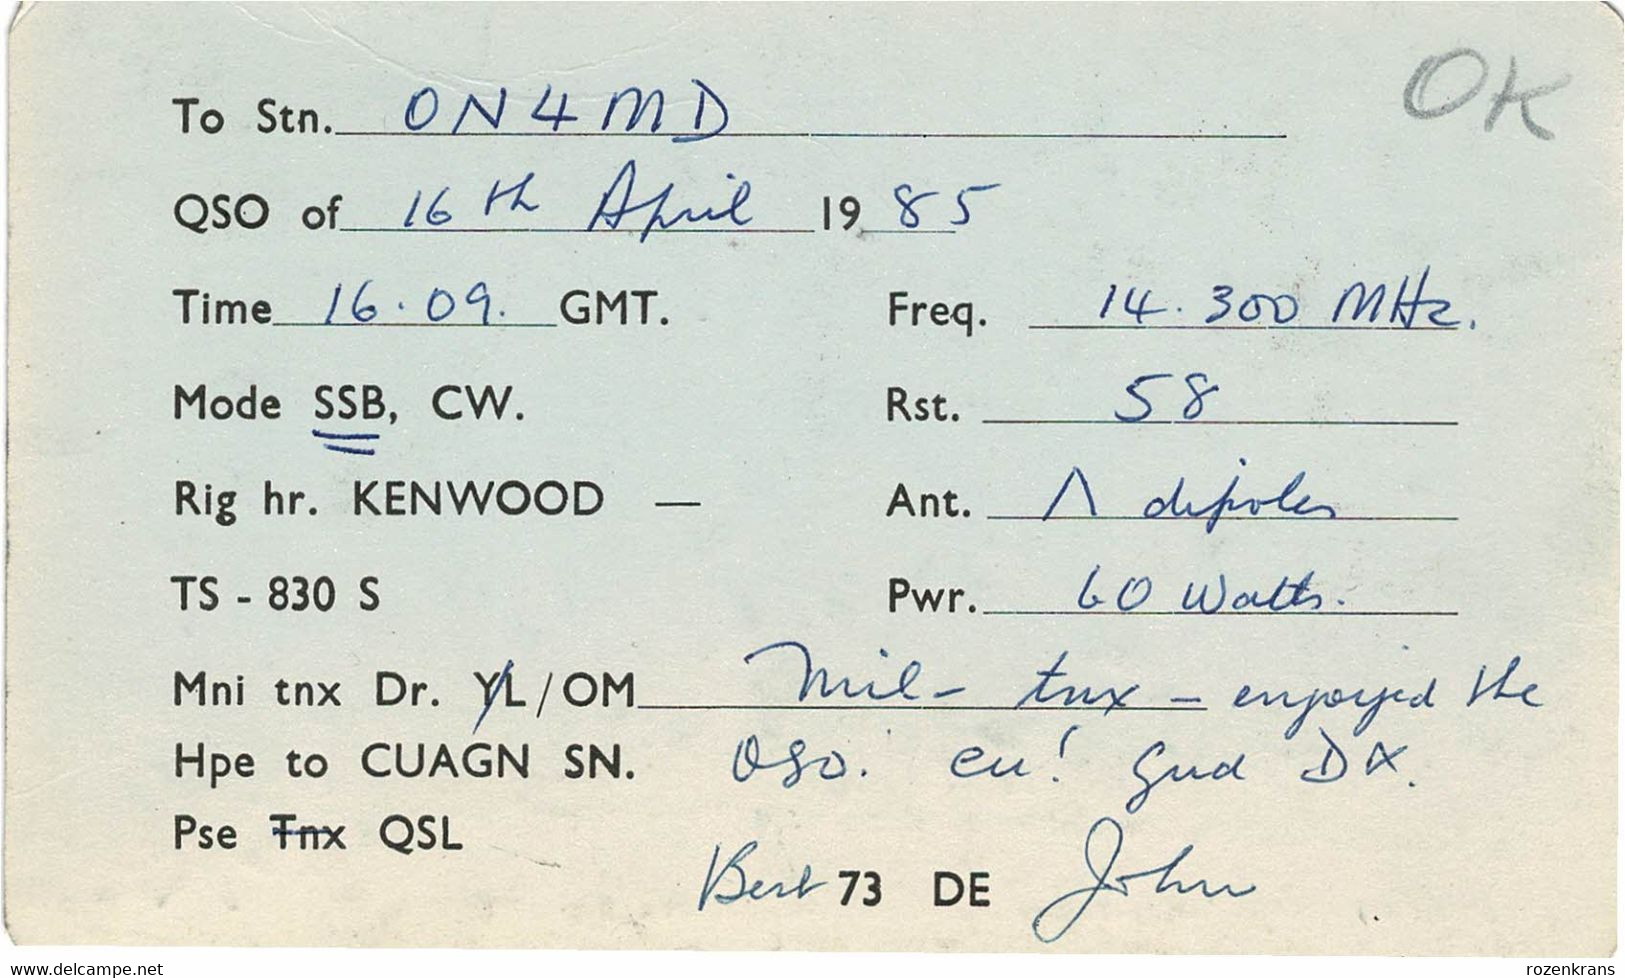 OK
To Stn. ON4MD
QSO of 16th April 1985
Time 16.09. GMT. Freq. 14.300 MHz.
Mode SSB, CW. Rst. 58
Rig hr. KENWOOD — Ant. Λ dipoles
TS - 830 S Pwr. 60 Watts.
Mni tnx Dr. YL / OM Mil - tnx - enjoyed the
Hpe to CUAGN SN. QSO. cu! Gud DX.
Pse Tnx QSL
Best 73 DE John
www.delcampe.net rozenkrans